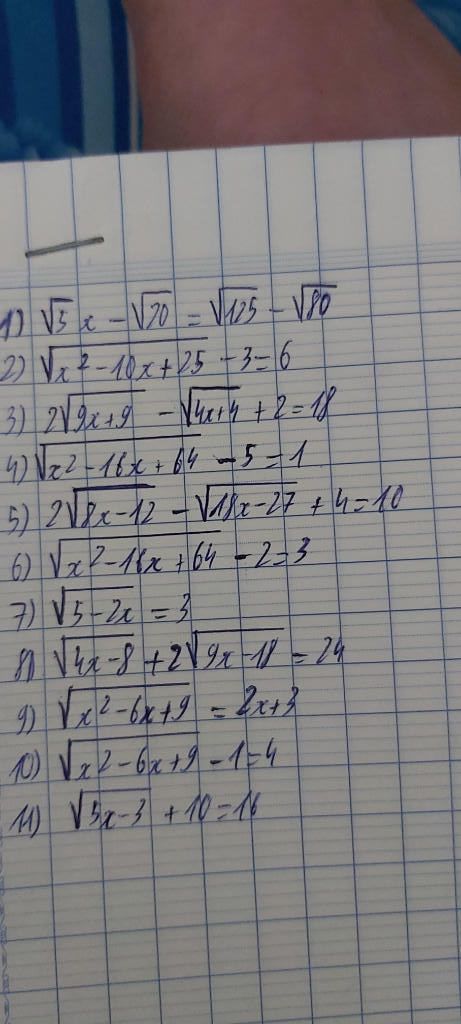 1) √5 x - √20 = √125 - √80
2) √(x² - 10x + 25) - 3 = 6
3) 2√(9x+9) - √(4x+4) + 2 = 18
4) √(x² - 16x + 64) - 5 = 1
5) 2√(8x-12) - √(18x-27) + 4 = 10
6) √(x² - 16x + 64) - 2 = 3
7) √(5-2x) = 3
8) √(4x-8) + 2√(9x-18) = 24
9) √(x² - 6x + 9) = 2x+3
10) √(x² - 6x + 9) - 1 = 4
11) √(5x-3) + 10 = 16